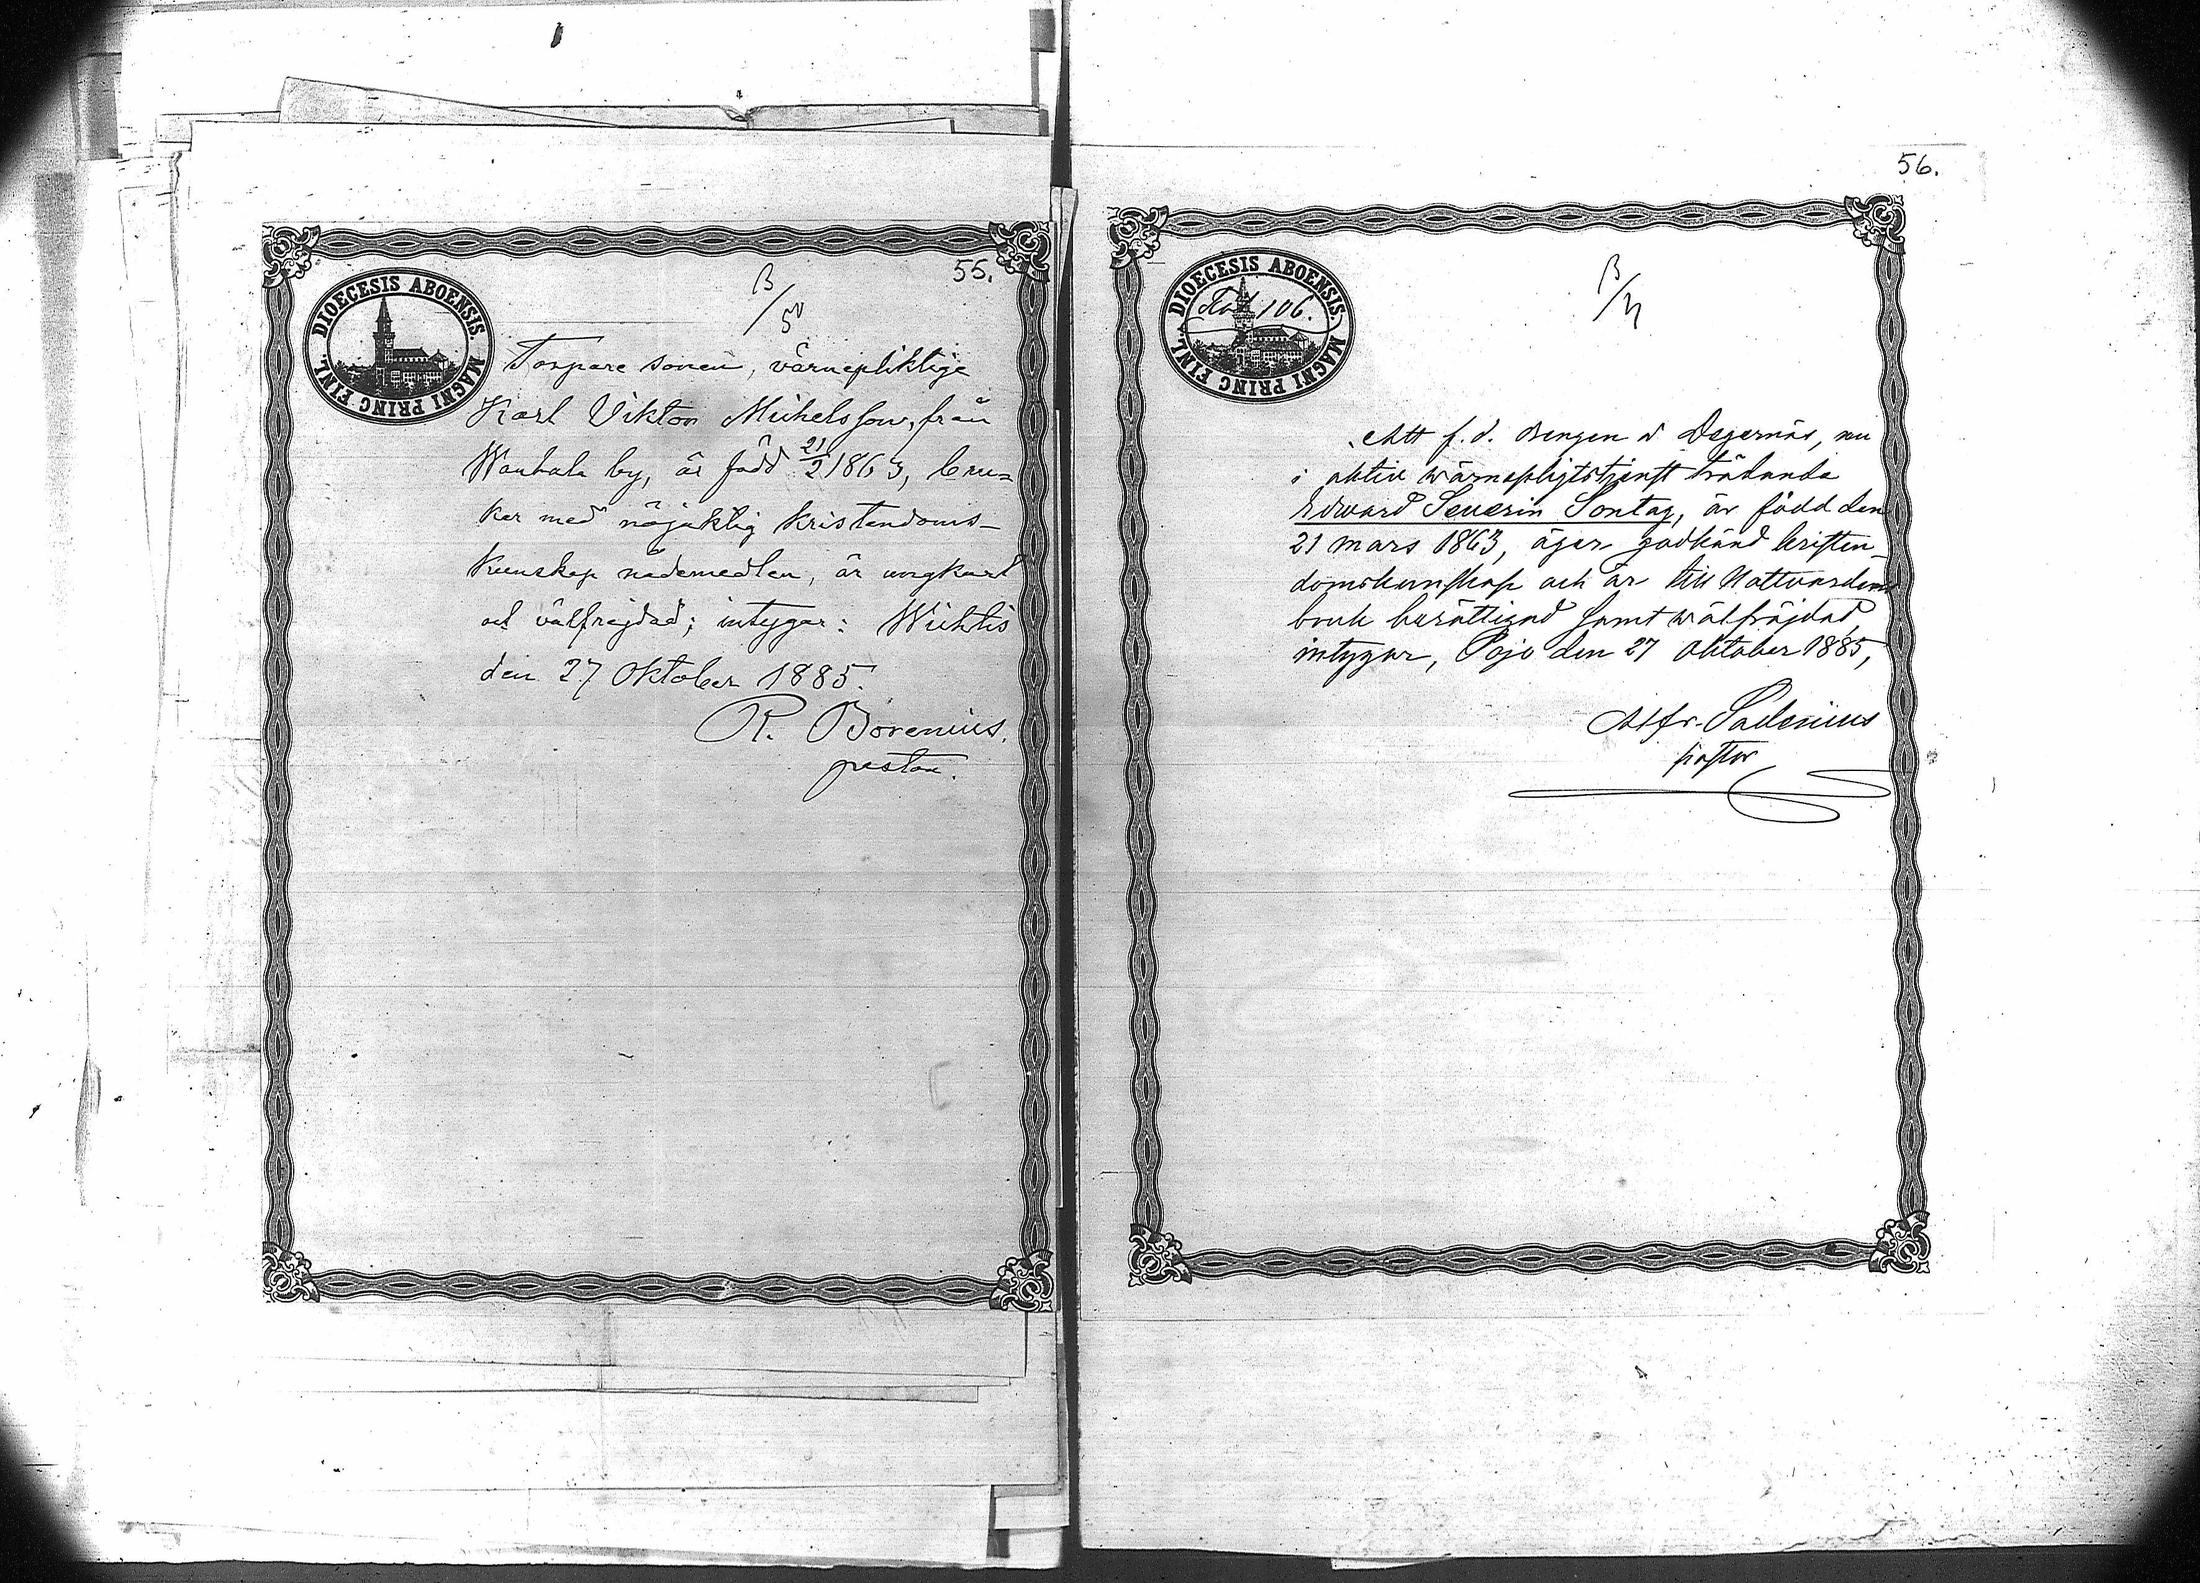 55.
B/50
DIOECESIS ABOENSIS. MAGNI PRINC FINL.
Torpare sonen, värnepliktige
Karl Viktor Mikelsson, från
Wanhala by, är född 21/2 1863, bru-
ker med nöjaktig kristendoms-
kunskap nådemedlen, är ungkarl
och välfrejdad; intygar: Wichtis
den 27 Oktober 1885.
R. Borenius,
pastor.
56.
DIOECESIS ABOENSIS. MAGNI PRINC FINL.
106.
Att f.d. drengen å Degernäs, nu
i aktiv wärnepligtstjenst trädande
Edward Severin Sontag, är född den
21 mars 1863, äger godkänd kristen-
domskunskap och är till Nattvardens
bruk berättigad samt wälfräjdad,
intygar, Pojo den 27 Oktober 1885,
Alfr. Sadenius
pastor